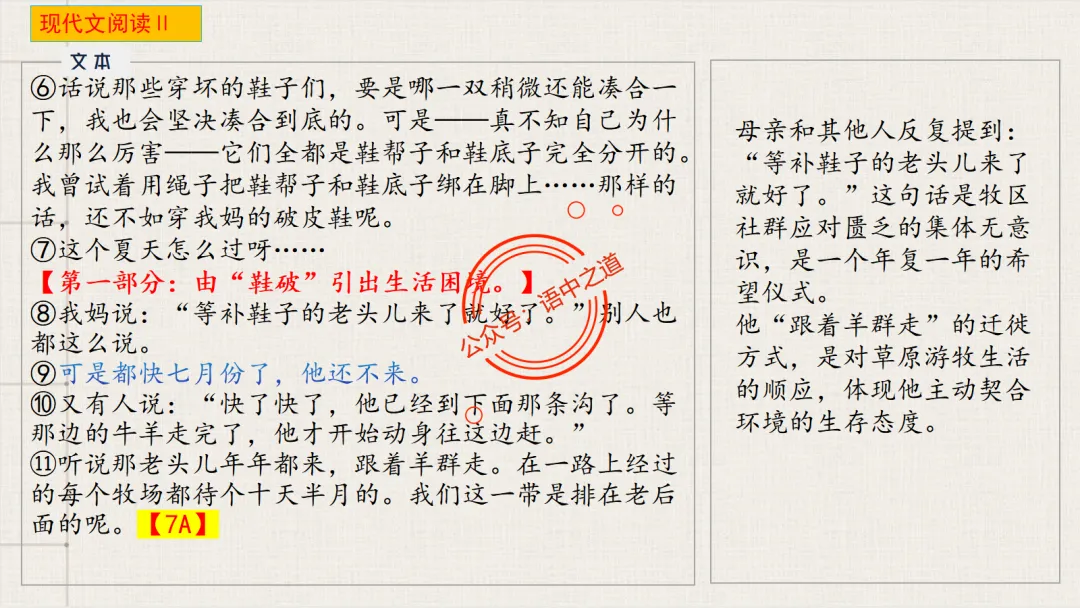 现代文阅读Ⅱ
文本
⑥话说那些穿坏的鞋子们，要是哪一双稍微还能凑合一
下，我也会坚决凑合到底的。可是——真不知自己为什
么那么厉害——它们全都是鞋帮子和鞋底子完全分开的。
我曾试着用绳子把鞋帮子和鞋底子绑在脚上……那样的
话，还不如穿我妈的破皮鞋呢。
⑦这个夏天怎么过呀……
【第一部分：由“鞋破”引出生活困境。】
⑧我妈说：“等补鞋子的老头儿来了就好了。”别人也
都这么说。
⑨可是都快七月份了，他还不来。
⑩又有人说：“快了快了，他已经到下面那条沟了。等
那边的牛羊走完了，他才开始动身往这边赶。”
⑪听说那老头儿年年都来，跟着羊群走。在一路上经过
的每个牧场都待个十天半月的。我们这一带是排在老后
面的呢。【7A】
母亲和其他人反复提到：
“等补鞋子的老头儿来了
就好了。”这句话是牧区
社群应对匮乏的集体无意
识，是一个年复一年的希
望仪式。
他“跟着羊群走”的迁徙
方式，是对草原游牧生活
的顺应，体现他主动契合
环境的生存态度。
公众号：语中之道